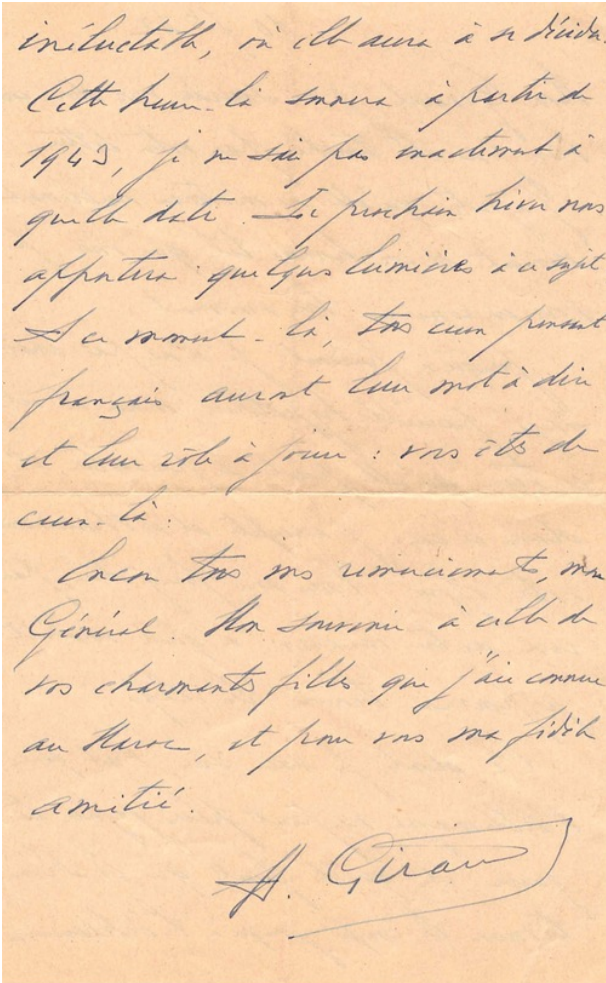 inéluctable, où elle aura à se décider.
Cette heure-là sonnera à partir de
1943, je ne sais pas exactement à
quelle date. Le prochain hiver nous
apportera quelques lumières à ce sujet
A ce moment-là, tous ceux pensant
français auront leur mot à dire
et leur rôle à jouer : vous êtes de
ceux-là.
Encore tous mes remerciements, mon
Général. Mon souvenir à celle de
vos charmantes filles que j'ai connue
au Maroc, et pour vous ma fidèle
amitié.
H. Giraud